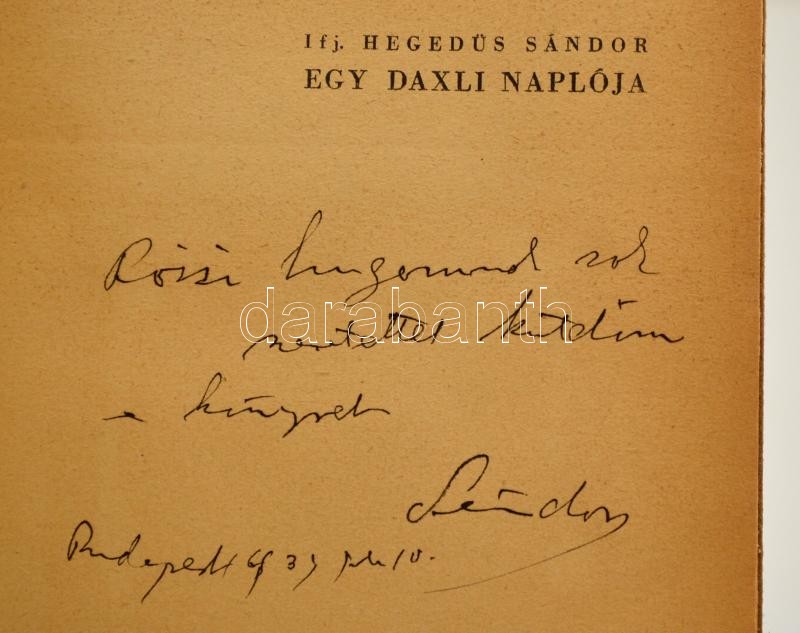 Ifj. HEGEDÜS SÁNDOR
EGY DAXLI NAPLÓJA
Rózsi hugomnak sok
darabanth
szeretettel küldöm
e könyvet
Sándor
Budapest 1939 10.